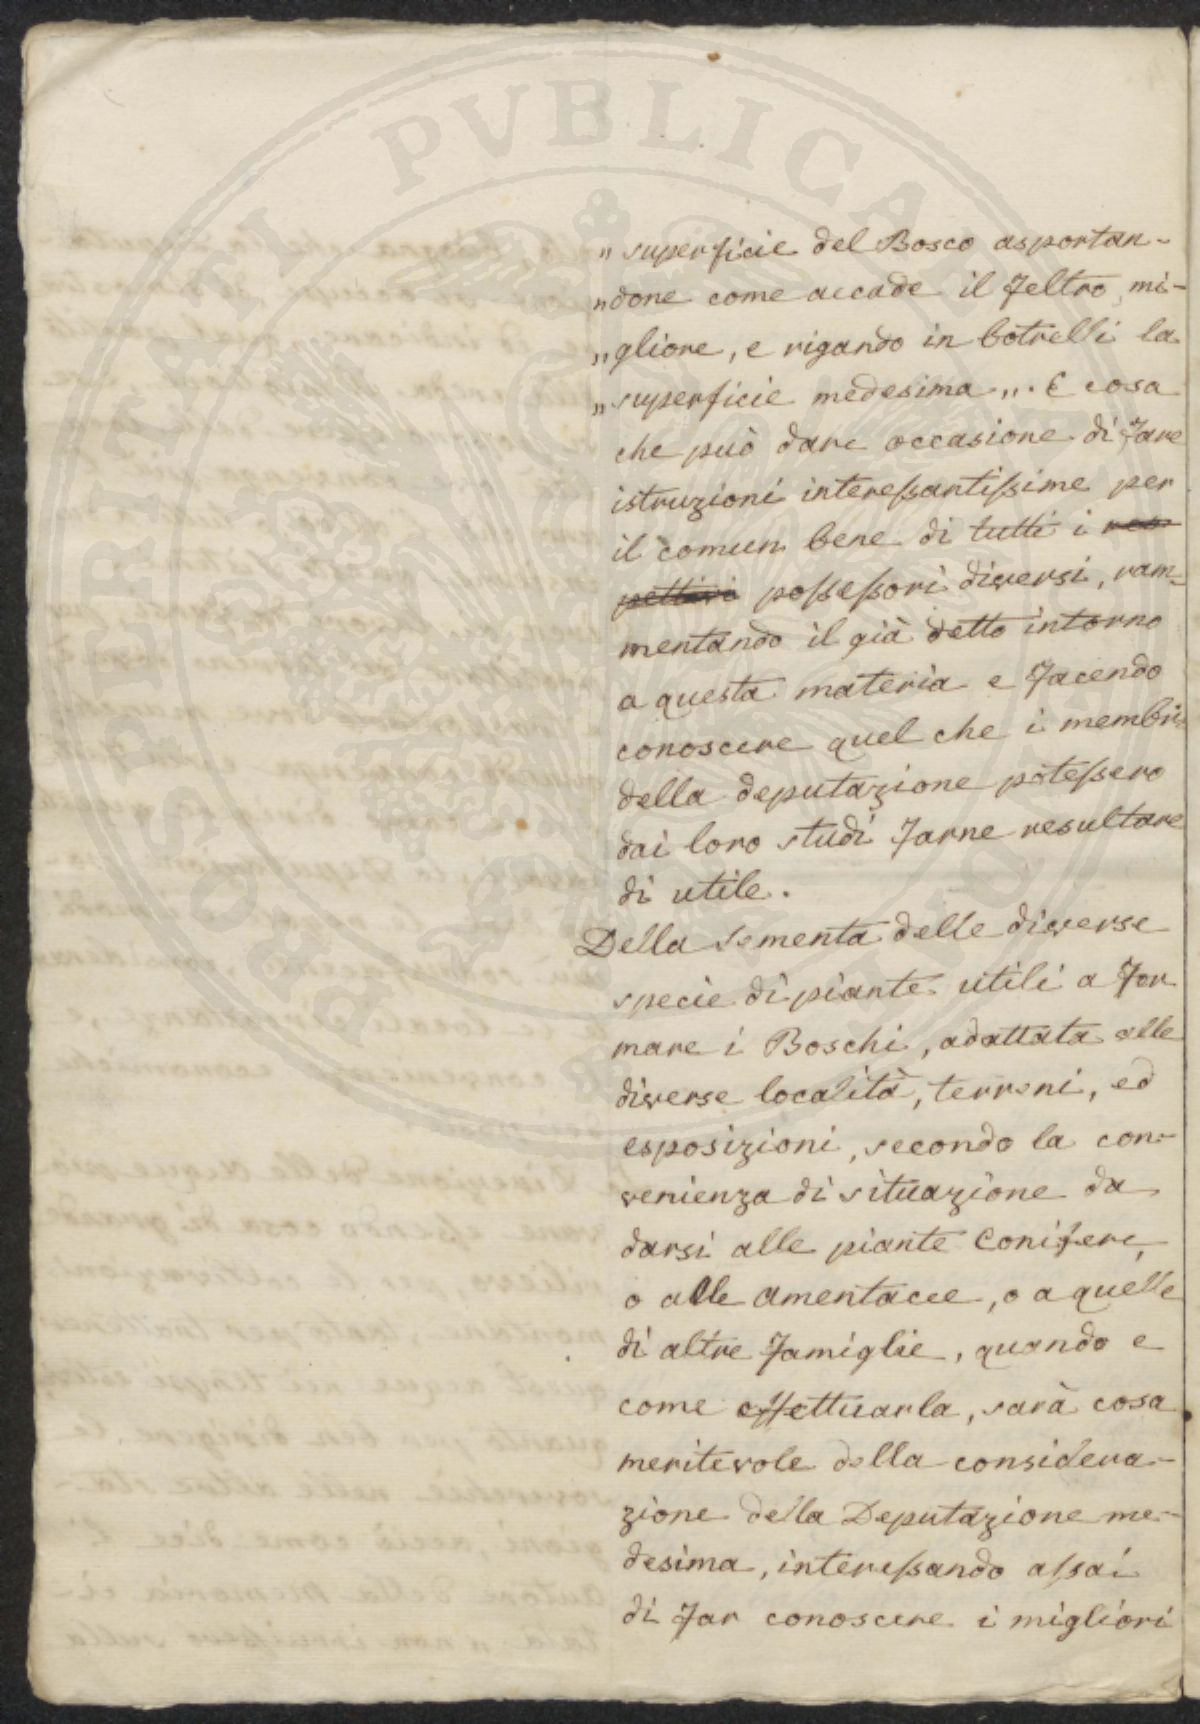 „ superficie del Bosco asportan-
„ done come accade il feltro mi-
„ gliore, e rigando in botrelli la
„ superficie medesima „. È cosa
che può dare occasione di fare
istruzioni interessantissime per
il comun bene di tutti i res-
pettivi possessori diversi, ram-
mentando il già detto intorno
a questa materia e facendo
conoscere quel che i membri
della deputazione potessero
dai loro studi farne resultare
di utile.
Della sementa delle diverse
specie di piante utili a for
mare i Boschi, adattata alle
diverse località, terreni, ed
esposizioni, secondo la con-
venienza di situazione da
darsi alle piante Conifere,
o alle amentacee, o a quelle
di altre famiglie, quando e
come effettuarla, sarà cosa
meritevole della considera-
zione della Deputazione me-
desima, interessando assai
di far conoscere i migliori
PROSPERITATI PVBLICAE